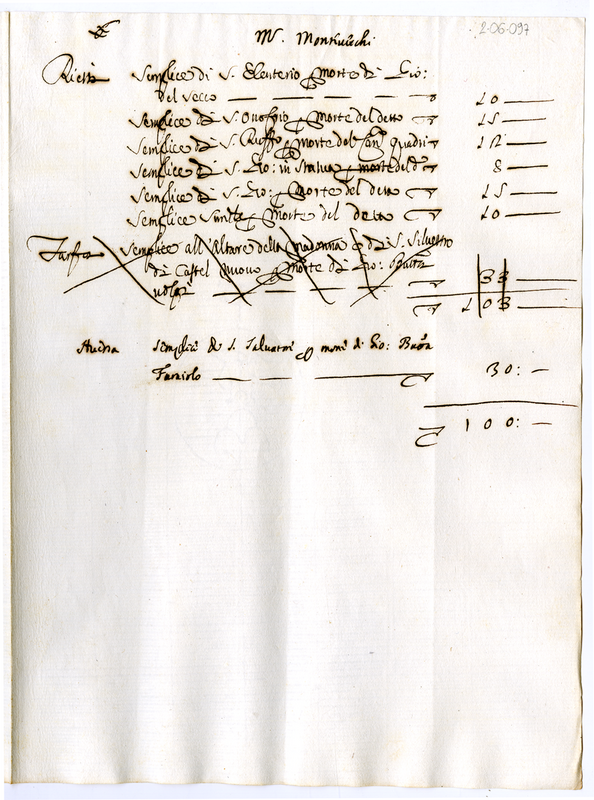 2.06.097
M. Montuiechi
Rieti Semplice di S. Eleuterio morte di Gio:
del Secco 10
Semplice di S. Onofrio morte del detto 15
Semplice di S. Ruffo morte del Can. Quadri 12
Semplice di S. Gio: in Statua morte del d. 8
Semplice di S. Gio: morte del detto 15
Semplice simile morte del detto 10
Farfa Semplice all'Altare della Madonna di S. Silvestro
di Castel nuovo morte di Gio:
33
103
Semplice di S. Salvatore di Gio:
30:
100: